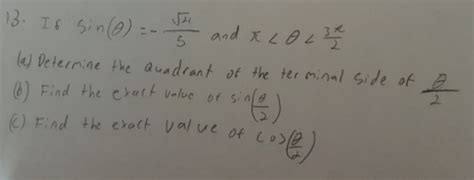 13. If sin(θ) = - √21/5 and π < θ < 3π/2
(a) Determine the quadrant of the terminal side of θ/2
(b) Find the exact value of sin(θ/2)
(c) Find the exact value of cos(θ/2)